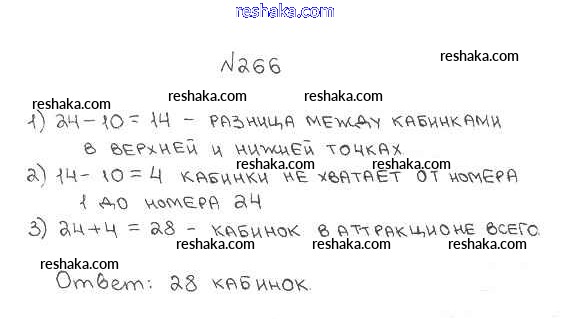 reshaka.com
№266
reshaka.com
reshaka.com
reshaka.com
reshaka.com
1) 24-10=14 - РАЗНИЦА МЕЖДУ КАБИНКАМИ
В ВЕРХНЕЙ И НИЖНЕЙ ТОЧКАХ
reshaka.com
reshaka.com
2) 14-10=4 КАБИНКИ НЕ ХВАТАЕТ ОТ НОМЕРА
1 ДО НОМЕРА 24
reshaka.com
reshaka.com
3) 24+4=28 - КАБИНОК В АТТРАКЦИОНЕ ВСЕГО.
reshaka.com
reshaka.com
reshaka.com
reshaka.com
Ответ: 28 КАБИНОК.